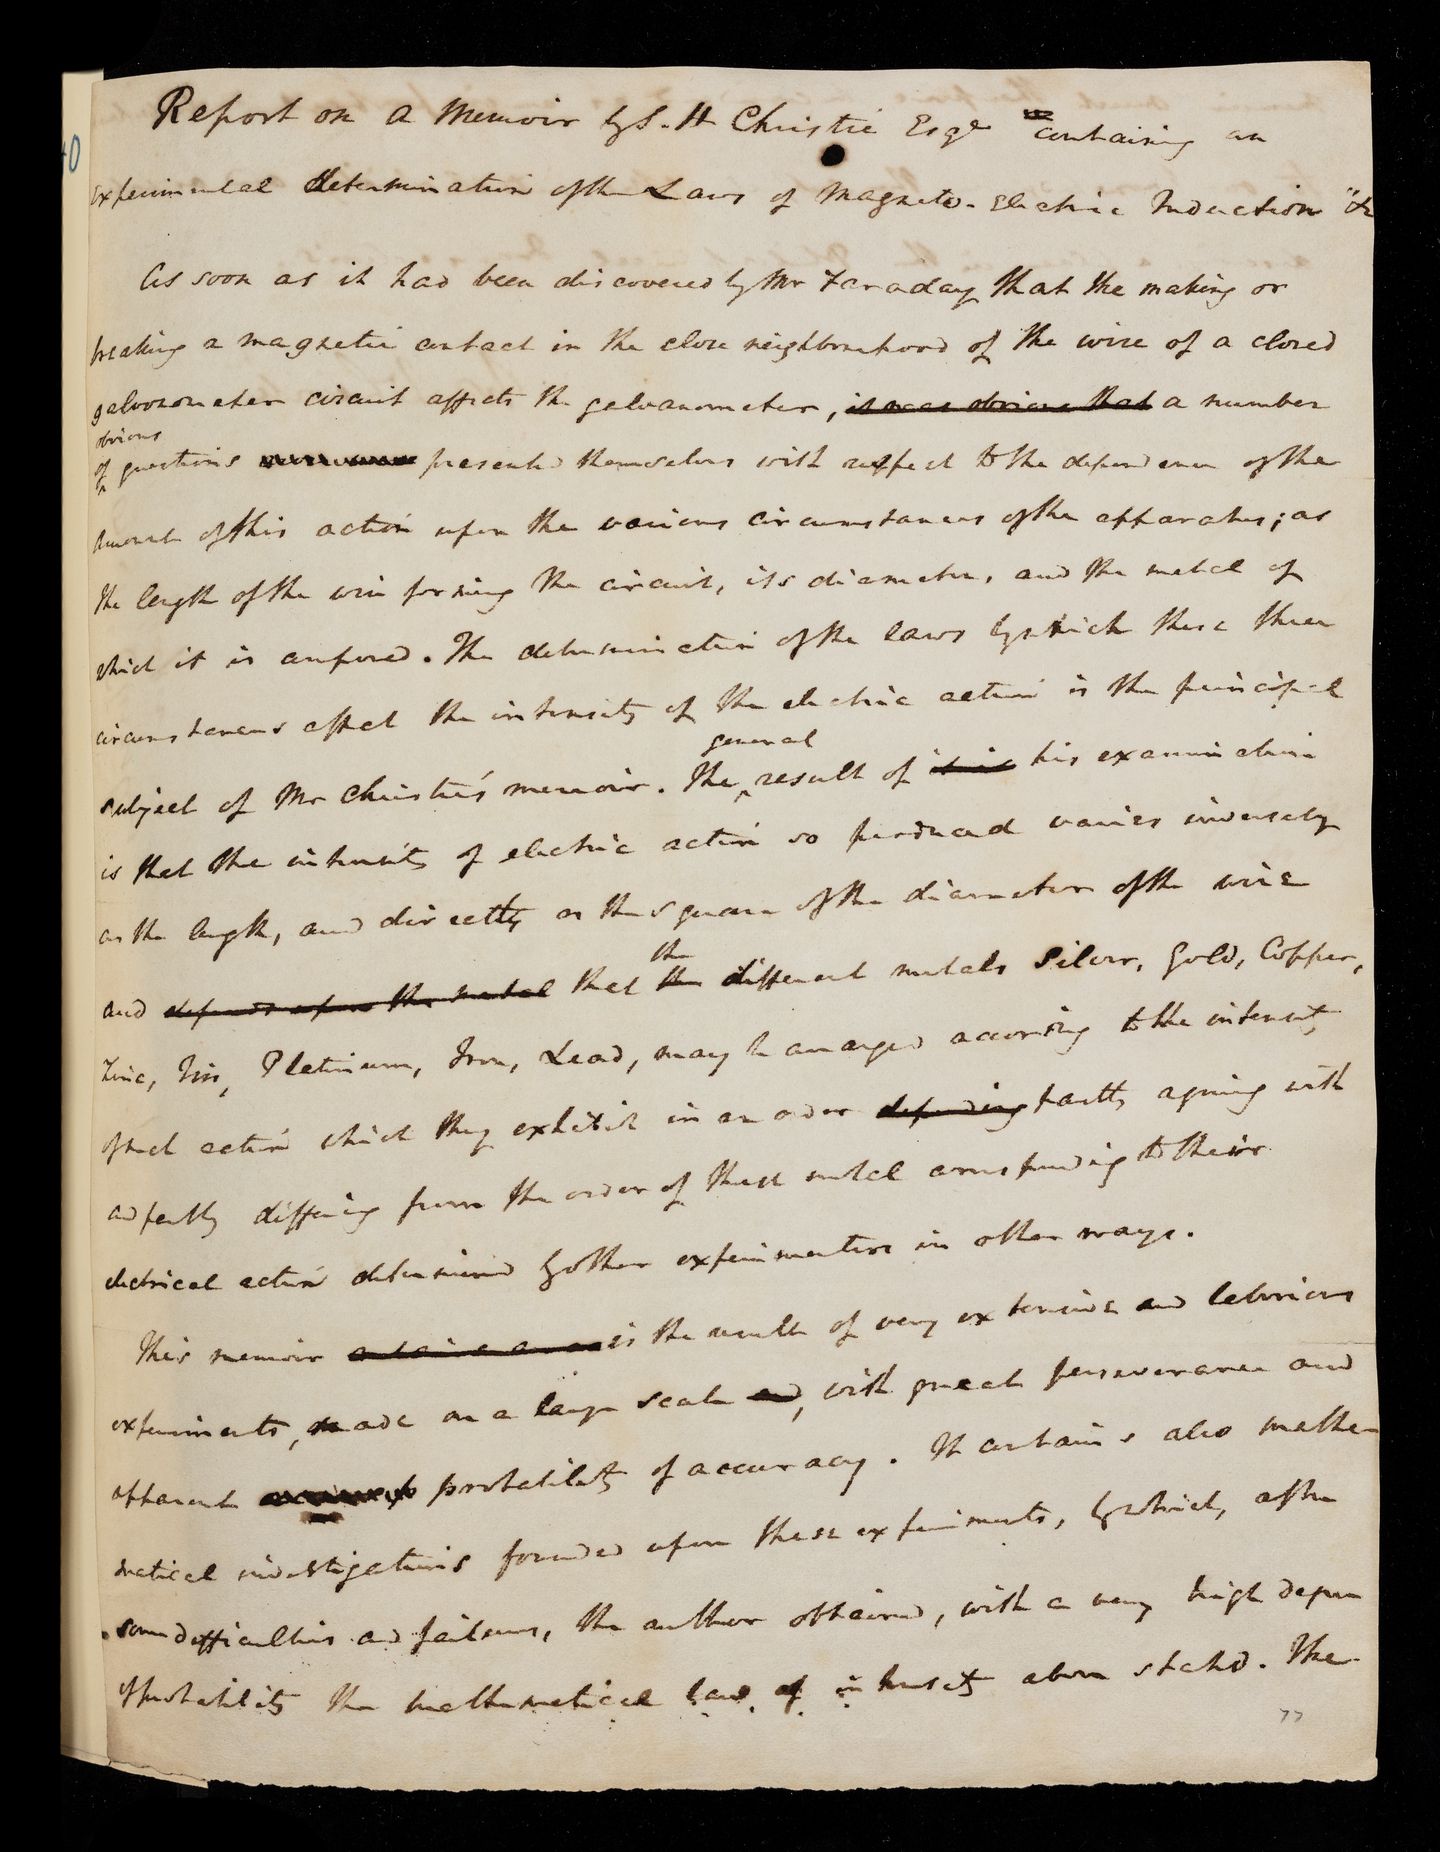 Report on a Memoir by S. H Christie Esqre "containing an
experimental determination of the Laws of Magneto-Electric Induction" &c
As soon as it had been discovered by Mr Faraday that the making or
breaking a magnetic contact in the close neighbourhood of the wire of a closed
galvanometer circuit affects the galvanometer, it was obvious that a number
obvious
of questions presented themselves with respect to the dependence of the
amount of this action upon the various circumstances of the apparatus; as
the length of the wire forming the circuit, its diameter, and the metal of
which it is composed. The determination of the laws by which these three
circumstances affect the intensity of the electric action is the principal
general
subject of Mr Christie's memoir. The result of his examination
is that the intensity of electric action so produced varies inversely
as the length, and directly as the square of the diameter of the wire
the
and depends upon the metal that the different metals Silver, Gold, Copper,
Zinc, Tin, Platinum, Iron, Lead, may be arranged according to the intensity
of such action which they exhibit in an order depending partly agreeing with
and partly differing from the order of these metal corresponding to their
electrical action determined by other experimenters in other ways.
This memoir is the result of very extensive and laborious
experiments, made on a large scale and, with great perseverance and
apparent probability of accuracy. It contains also mathe-
matical investigations founded upon these experiments, by which, after
some difficulties and failures, the author obtained, with a very high degree
of probability the mathematical laws of intensity above stated. The
77
40